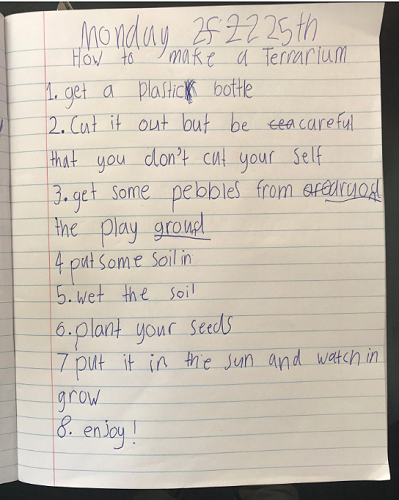 Monday 25th
How to make a Terrarium
1. get a plastic bottle
2. Cut it out but be careful
that you don't cut your self
3. get some pebbles from
the play
4 put some soil in
5. wet the soil
6. plant your seeds
7 put it in the sun and watch in
grow
8. enjoy!